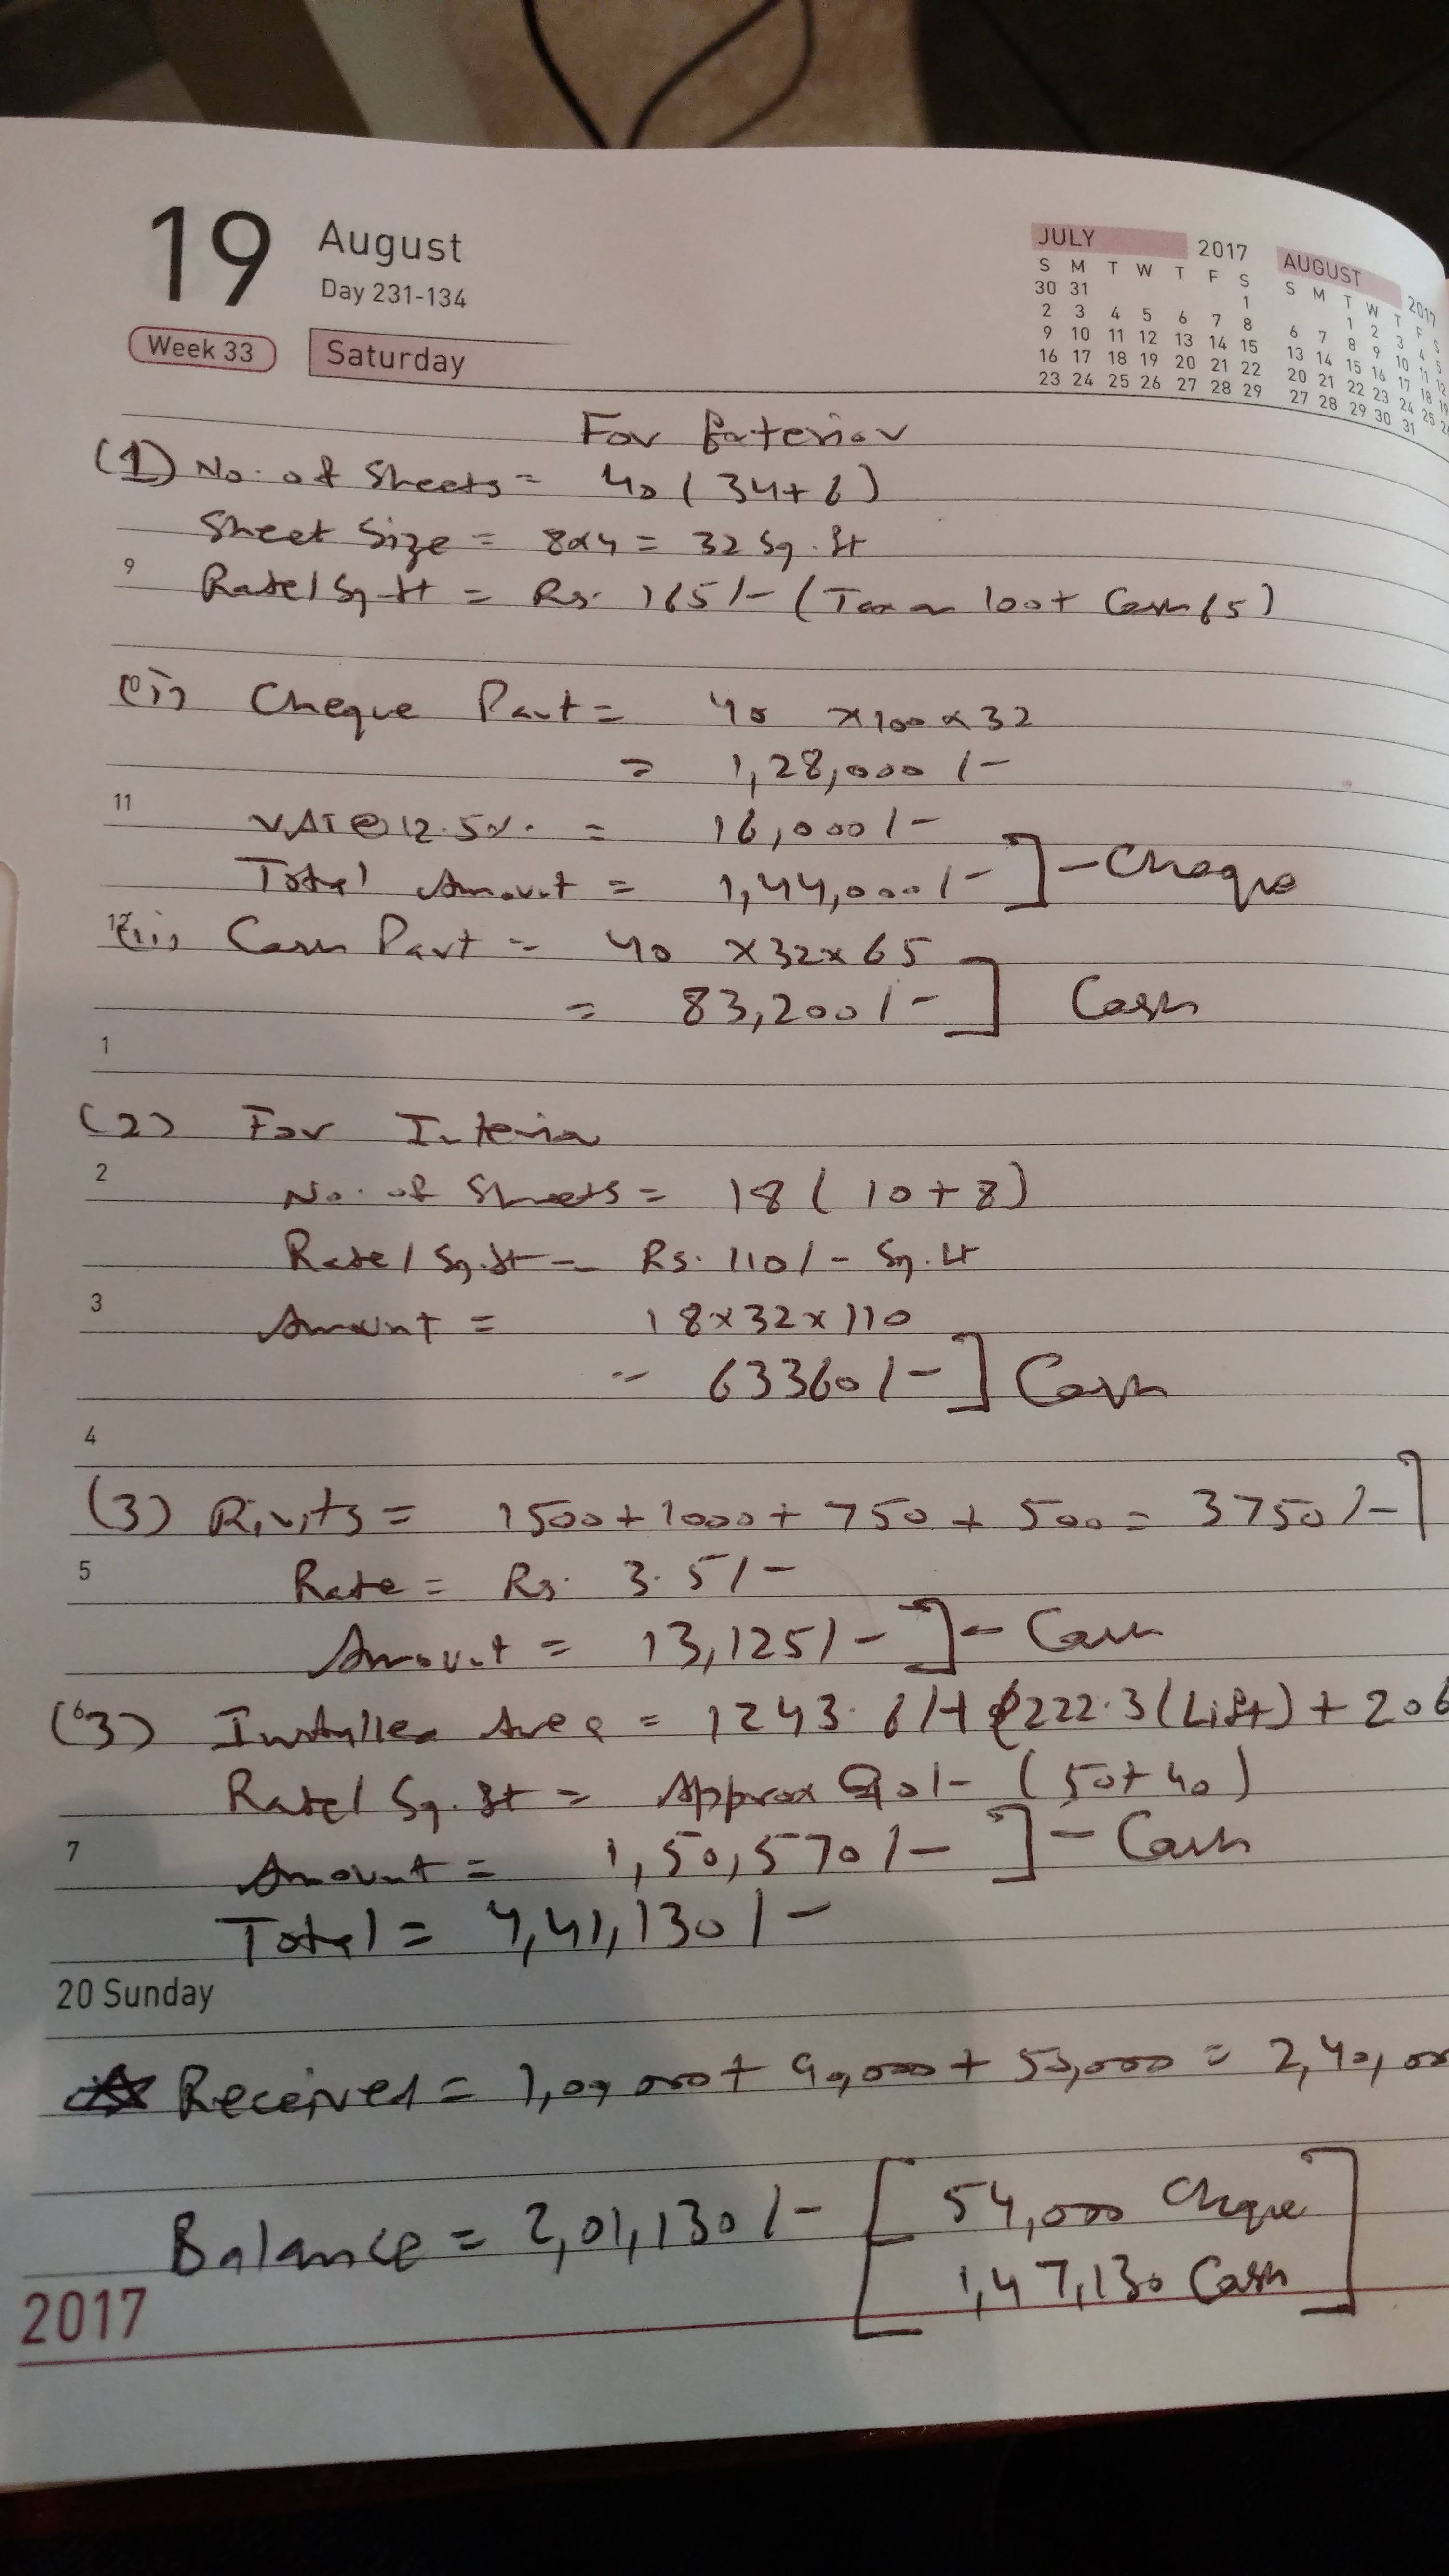 19 August
Day 231-134
Week 33 Saturday
JULY 2017
S M T W T F S
30 31 1
2 3 4 5 6 7 8
9 10 11 12 13 14 15
16 17 18 19 20 21 22
23 24 25 26 27 28 29
AUGUST 2017
S M T W T F S
1 2 3 4 5
6 7 8 9 10 11 12
13 14 15 16 17 18 19
20 21 22 23 24 25 26
27 28 29 30 31
For Exterior
(1) No. of Sheets = 40 (34+6)
Sheet Size = 8x4 = 32 Sq. ft
9 Rate/Sq.ft = Rs. 165/- (Tax on 100 + Cash 65)
(i) Cheque Part = 40 x100 x32
= 1,28,000/-
11 VAT @ 12.5% = 16,000/-
Total Amount = 1,44,000/- ] - Cheque
12 (ii) Cash Part = 40 x32x65
= 83,200/- ] Cash
1
(2) For Interior
2 No. of Sheets = 18 (10+8)
Rate/Sq.ft = Rs. 110/- Sq.ft
3 Amount = 18x32x110
= 63360/- ] Cash
4
(3) Rivits = 1500+1000+750+500 = 3750/- ]
5 Rate = Rs. 3.5/-
Amount = 13,125/- ] - Cash
6 (3) Installed Area = 1243.6 + 222.3 (Lift) + 206
Rate/Sq.ft = Approx 90/- (50+40)
7 Amount = 1,50,570/- ] - Cash
Total = 4,41,130/-
20 Sunday
Received = 1,00,000 + 90,000 + 50,000 = 2,40,00
Balance = 2,01,130/- [ 54,000 Cheque
1,47,130 Cash ]
2017